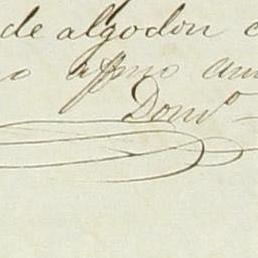 de algodon
o affmo am
Dom.o